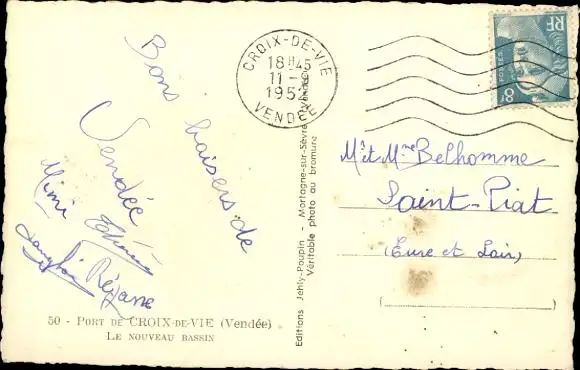 Bons baisers de
Vendée
Mimi
Réjane
50 - PORT DE CROIX-DE-VIE (Vendée)
LE NOUVEAU BASSIN
Editions Jehly-Poupin - Mortagne-sur-Sèvre (Vendée)
Véritable photo au bromure
CROIX-DE-VIE
18H45
11 -
VENDÉE
RF
POSTES
8F
Mr et Mme Belhomme
Saint-Piat
(Eure et Loir)